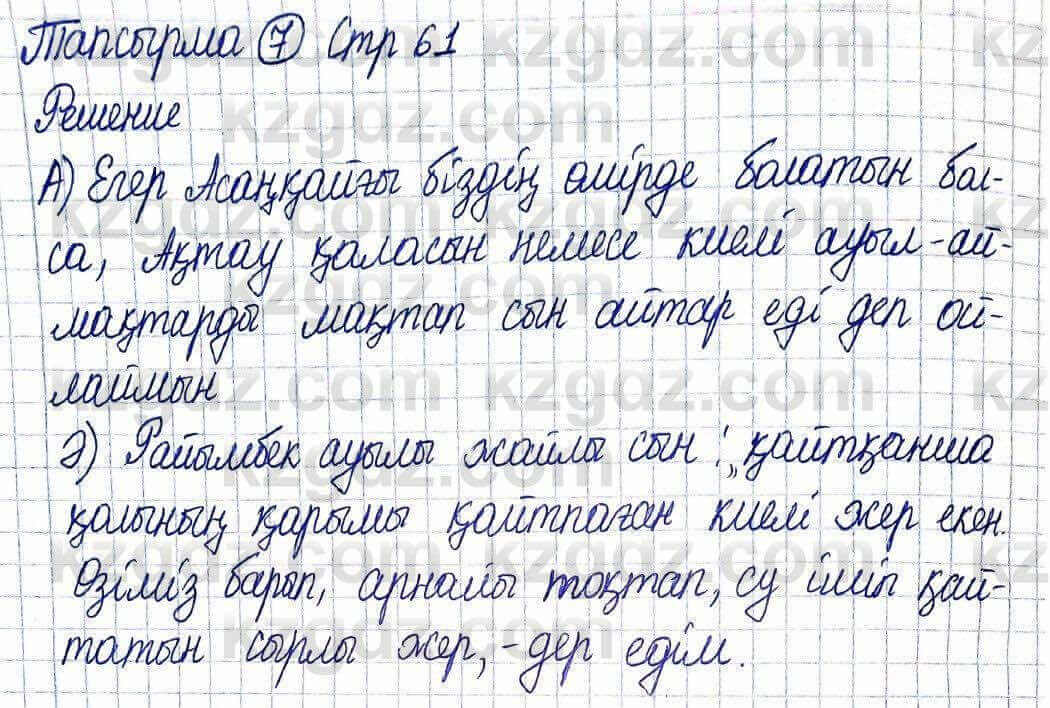 Тапсырма 7 Стр 61
Решение
А) Егер Асанқайғы біздің өмірде болатын бол-
са, Ақтау қаласын немесе киелі ауыл-ай-
мақтарды мақтап сын айтар еді деп ой-
лаймын
Ә) Райымбек ауылы жайлы сын: „қайтқанша
қалының қарымы қайтпаған киелі жер екен.
Өзіміз барып, арнайы тоқтап, су ішіп қай-
татын сырлы жер, - дер едім.
kzgdz.com